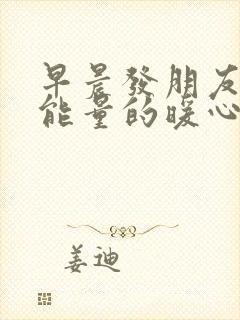 早晨發朋友
能量的暖心
姜迪